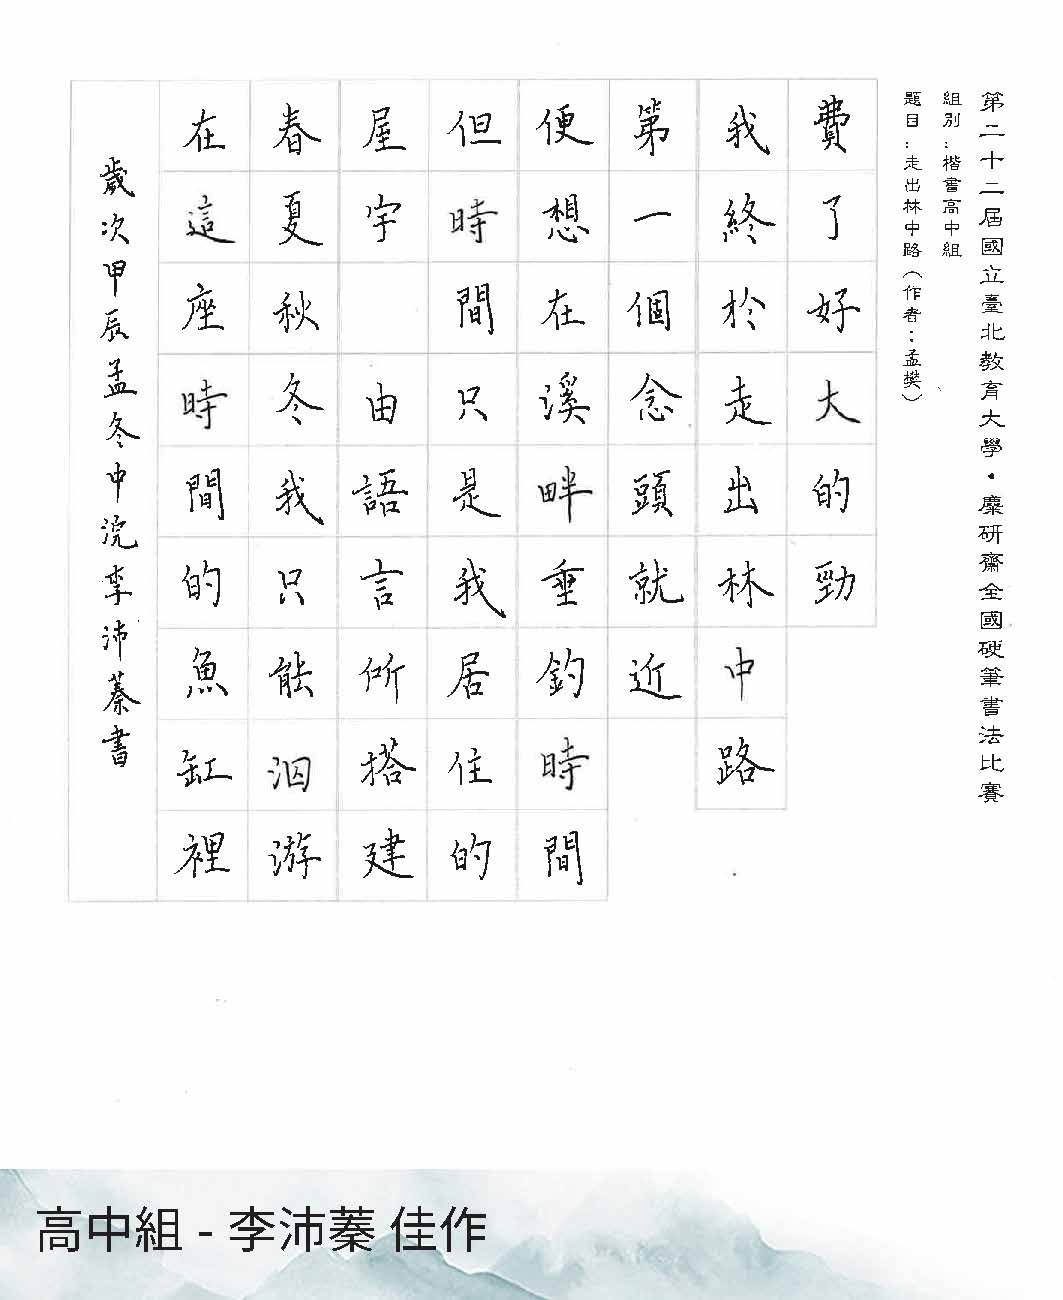 第二十二屆國立臺北教育大學・麋研齋全國硬筆書法比賽
組別：楷書高中組
題目：走出林中路（作者：孟樊）
費了好大的勁
我終於走出林中路
第一個念頭就近
便想在溪畔垂釣時間
但時間只是我居住的
屋宇　由語言所搭建
春夏秋冬我只能泅游
在這座時間的魚缸裡
歲次甲辰孟冬中浣李沛蓁書
高中組 - 李沛蓁 佳作